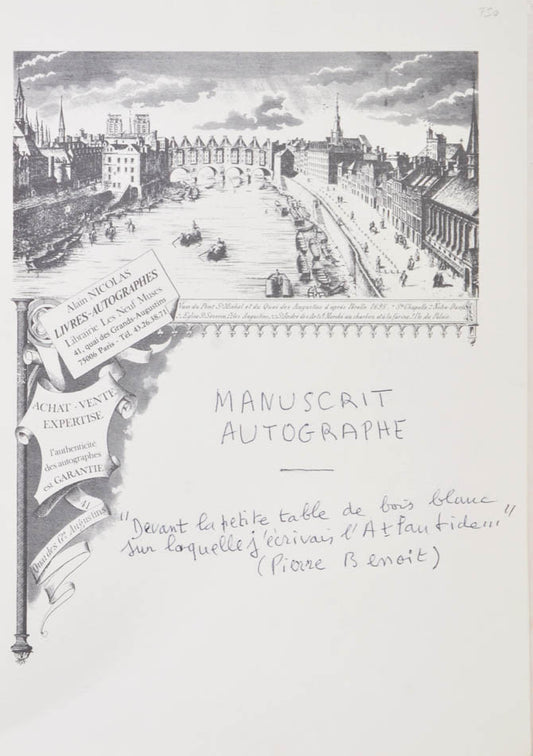 730
Vue du Pont St Michel et du Quay des Augustins d'après Pérelle 1695
Alain NICOLAS
LIVRES-AUTOGRAPHES
Librairie Les Neuf Muses
41, quai des Grands-Augustins
75006 Paris - Tél. 43.26.38.71
ACHAT - VENTE
EXPERTISE
l'authenticité
des autographes
est GARANTIE
41
Quai des Gds Augustins
MANUSCRIT
AUTOGRAPHE
"Devant la petite table de bois blanc
sur laquelle j'écrivais l'Atlantide..."
(Pierre Benoit)